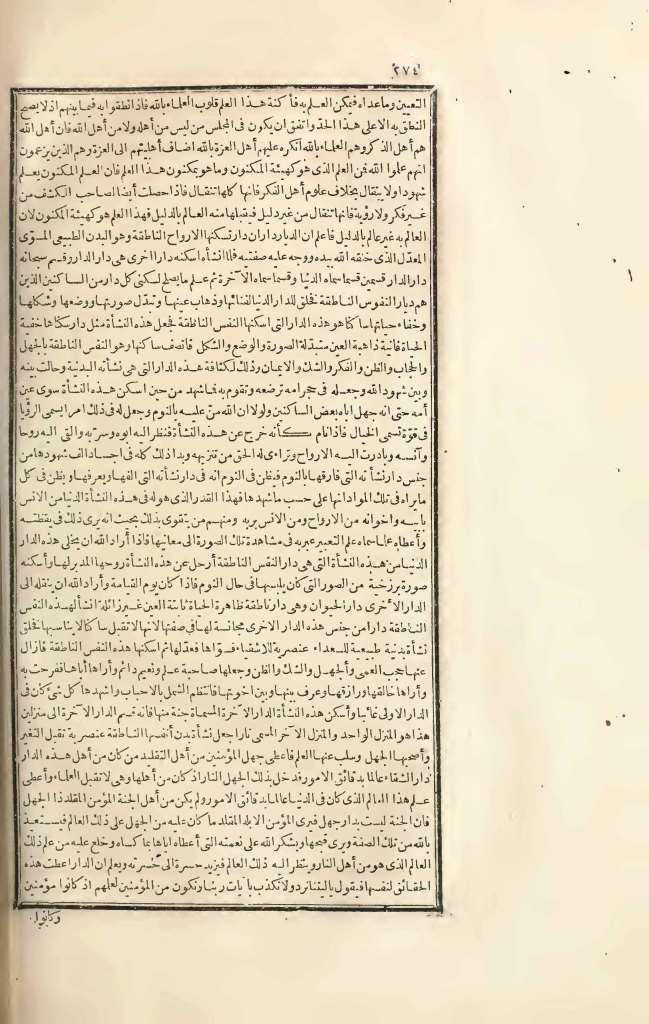 ٢٧٤
التعيين وما عداه فيمكن العلم به فأكنة هذا العلم قلوب العلماء بالله فاذا نطقوا به فيما بينهم اذ لا يصح
النطق به الا على هذا الحد واتفق ان يكون فى المجلس من ليس من أهله ولا من أهل الله فان أهل الله
هم أهل الذكر وهم العلماء بالله أنكره عليهم أهل العزة بالله اضاف أهليتهم الى العزة وهم الذين يزعمون
انهم علموا الله فمن العلم الذى هو كهيئة المكنون وما هو بمكنون هذا العلم فان العلم المكنون يعلم
شهودا ولا ينقال بخلاف علوم أهل الفكر فانها كلها تنقال فاذا حصلت أيضا لصاحب الكشف من
غير فكر ولا رؤية فانها تنقال من غير دليل فيقبلها منه العالم بالدليل فهذا العلم هو كهيئة المكنون لان
العالم به غير عالم بالدليل فاعلم ان الديار داران دار تسكنها الارواح الناطقة وهو البدن الطبيعى المسوّى
المعدّل الذى خلقه الله بيده ووجه عليه صفتيه فلما أنشأه أسكنه دارا اخرى هى دار الدار وقسم سبحانه
دار الدار قسمين قسما سماه الدنيا وقسما سماه الآخرة ثم علم ما يصلح لسكنى كل دار من الساكنين الذين
هم ديار النفوس الناطقة فخلق للدار الدنيا لفنائها وذهاب عينها وتبدّل صورتها ووضعها وشكلها
وخفاء حياتها ساكنا هو هذه الدار التى اسكنها النفس الناطقة فجعل هذه النشأة مثل دار سكناها خفية
الحياة فانية ذاهبة العين متبدّلة الصورة والوضع والشكل فاتصف ساكنها وهو النفس الناطقة بالجهل
والحجاب والظن والفكر والشك والايمان وذلك لكثافة هذه الدار التى هى نشأته البدنية وحالت بينه
وبين شهود الله وجعله فى حجر أمه ترضعه وتقوم به فما شهد من حين اسكن هذه النشأة سوى عين
أمه حتى انه جهل اباه بعض الساكنين ولولا ان الله منّ عليه بالنوم وجعل له فى ذلك امرا يسمى الرؤيا
فى قوّة تسمى الخيال فاذا نام كأنه خرج عن هذه النشأة فنظر اليه ابوه وسرّ به والقى اليه روحا
وآنسه وبادرت اليه الارواح وتراءى له الحق من تنزيهه وبدا ذلك كله فى اجساد الف شهودها من
جنس دار نشأته التى فارقها بالنوم فيظن فى النوم انه فى دار نشأته التى الفها ويعرفها ويظن فى كل
ما يراه فى تلك المواد انها على حسب ما شهدها فهذا القدر الذى هو له فى هذه النشأة الدنيا من الانس
بابيه واخوانه من الارواح ومن الانس بربه ومنهم من يتقوى بذلك بحيث انه يرى ذلك فى يقظته
وأعطاه علما سماه علم التعبير عبر به فى مشاهدة تلك الصورة الى معانيها فاذا أراد الله ان يخلى هذه الدار
الدنيا من هذه النشأة التى هى دار النفس الناطقة أرحل عن هذه النشأة روحها المدبر لها وأسكنه
صورة برزخية من الصور التى كان يلبسها فى حال النوم فاذا كان يوم القيامة وأراد الله ان ينقله الى
الدار الاخرى دار الحيوان وهى دار ناطقة ظاهرة الحياة ثابتة العين غير زائلة انشأ لهذه النفس
الناطقة دارا من جنس هذه الدار الاخرى مجانسة لها فى صفتها لانها لا تقبل ساكنا لا يناسبها فخلق
نشأة بدنية طبيعية للسعداء عنصرية للاشقياء فسوّاها فعدّلها ثم اسكنها هذه النفس الناطقة فازال
عنها حجب العمى والجهل والشك والظن وجعلها صاحبة علم ونعيم دائم وأراها أباها ففرحت به
وأراها خالقها ورازقها وعرف بينها وبين اخوتها فانتظم الشمل بالاحباب واشهدها كل شىء كان فى
الدار الاولى غائبا وأسكن هذه النشأة الدار الآخرة المسماة جنة منها فانه قسم الدار الآخرة الى منزلين
هذا هو المنزل الواحد والمنزل الآخر المسمى نارا جعل نشأة بدن أنفسها الناطقة عنصرية تقبل التغير
وأصحبها الجهل وسلب عنها العلم فاعطى جهل المؤمنين من أهل التقليد من كان من أهل هذه الدار
دار الشقاء عالما بدقائق الامور فدخل بذلك الجهل النار اذ كان من أهلها وهى لا تقبل العلماء وأعطى
علم هذا العالم الذى كان فى الدنيا عالما بدقائق الامور ولم يكن من أهل الجنة المؤمن المقلد ذا الجهل
فان الجنة ليست بدار جهل فيرى المؤمن الابله المقلد ما كان عليه من الجهل على ذلك العالم فيستعيذ
بالله من تلك الصفة ويرى قبحها ويشكر الله على نعمته التى أعطاه اياها بما كساه وخلع عليه من علم ذلك
العالم الذى هو من أهل النار وينظر اليه ذلك العالم فيزيد حسرة الى حسرته ويعلم ان الدار اعطت هذه
الحقائق لنفسها فيقول ياليتنا نرد ولا نكذب بآيات ربنا ونكون من المؤمنين لعلهم اذ كانوا مؤمنين
وكانوا